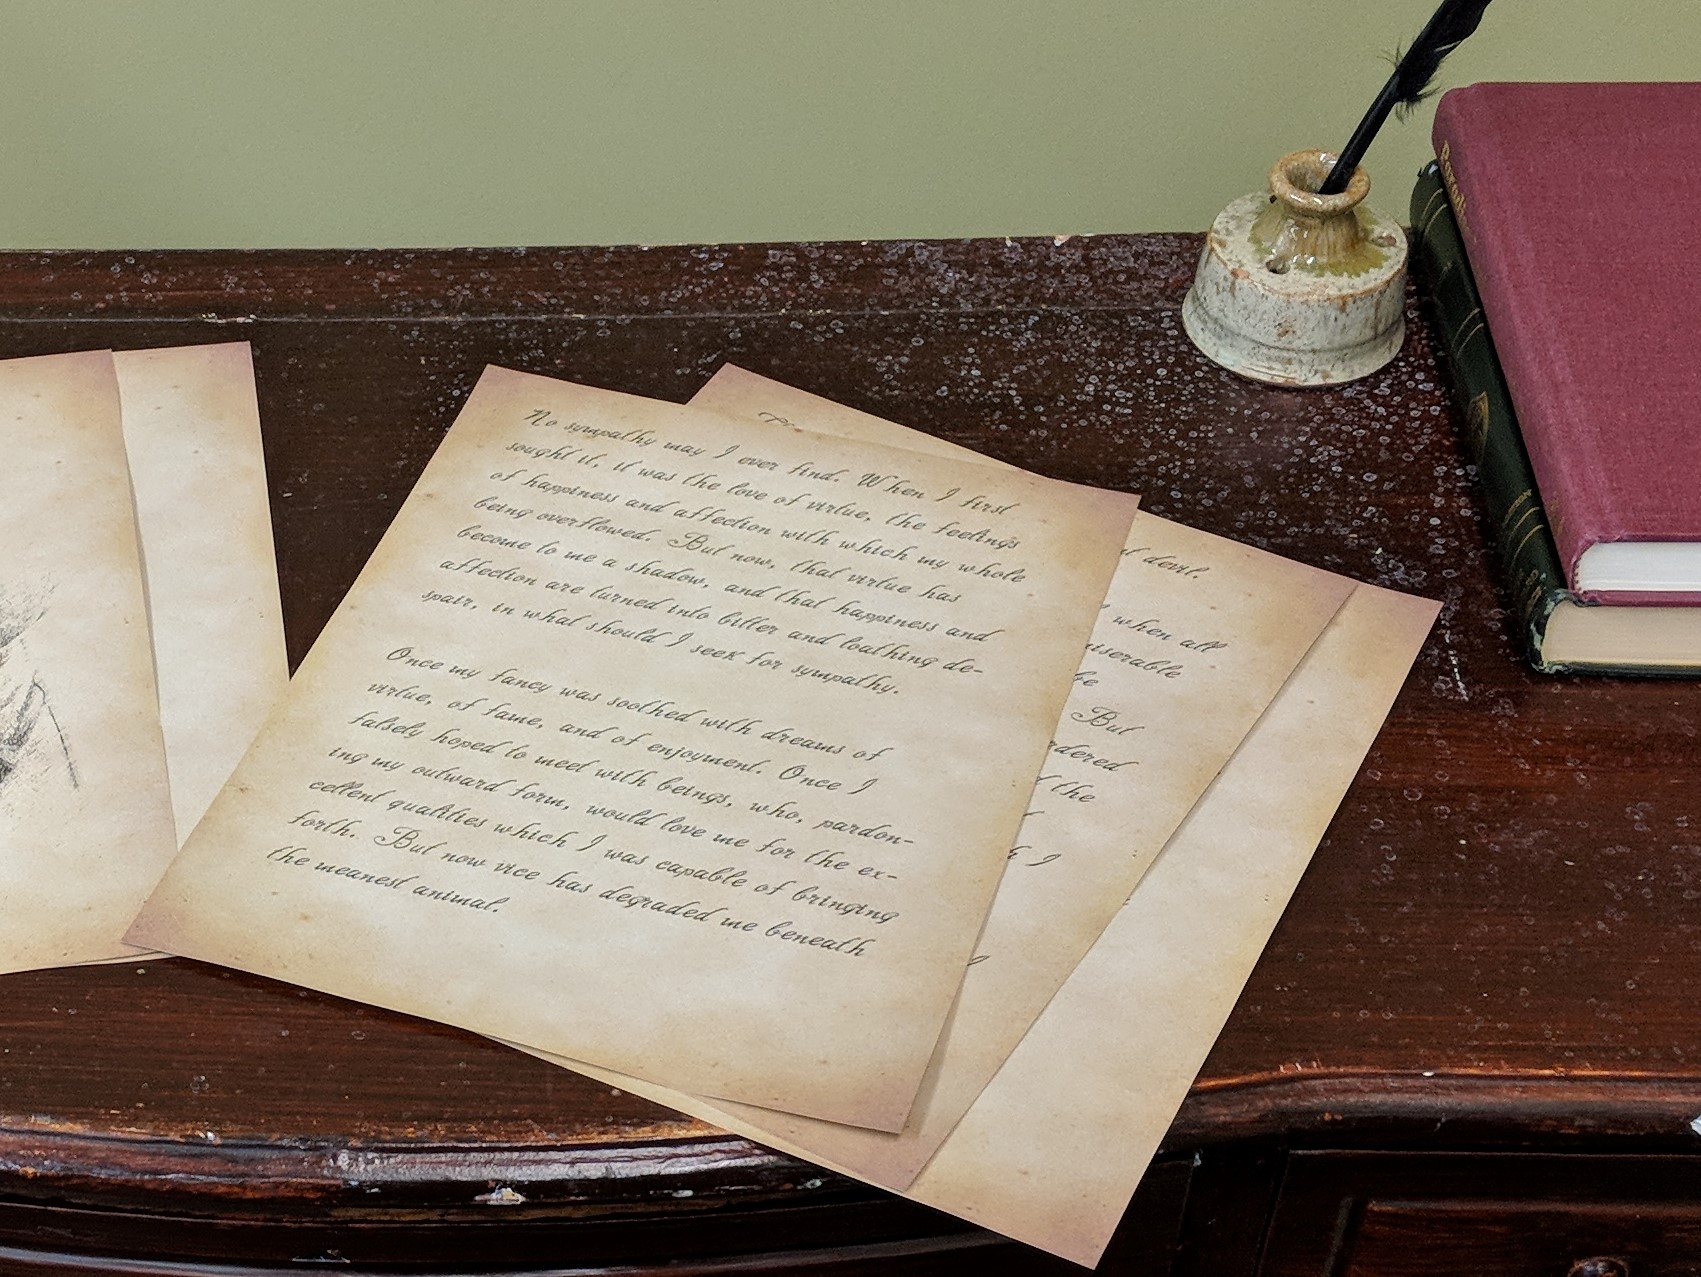 No sympathy may I ever find. When I first
sought it, it was the love of virtue, the feelings
of happiness and affection with which my whole
being overflowed. But now, that virtue has
become to me a shadow, and that happiness and
affection are turned into bitter and loathing de-
spair, in what should I seek for sympathy.
Once my fancy was soothed with dreams of
virtue, of fame, and of enjoyment. Once I
falsely hoped to meet with beings, who, pardon-
ing my outward form, would love me for the ex-
cellent qualities which I was capable of bringing
forth. But now vice has degraded me beneath
the meanest animal.
devil.
when all
miserable
be
But
the
I